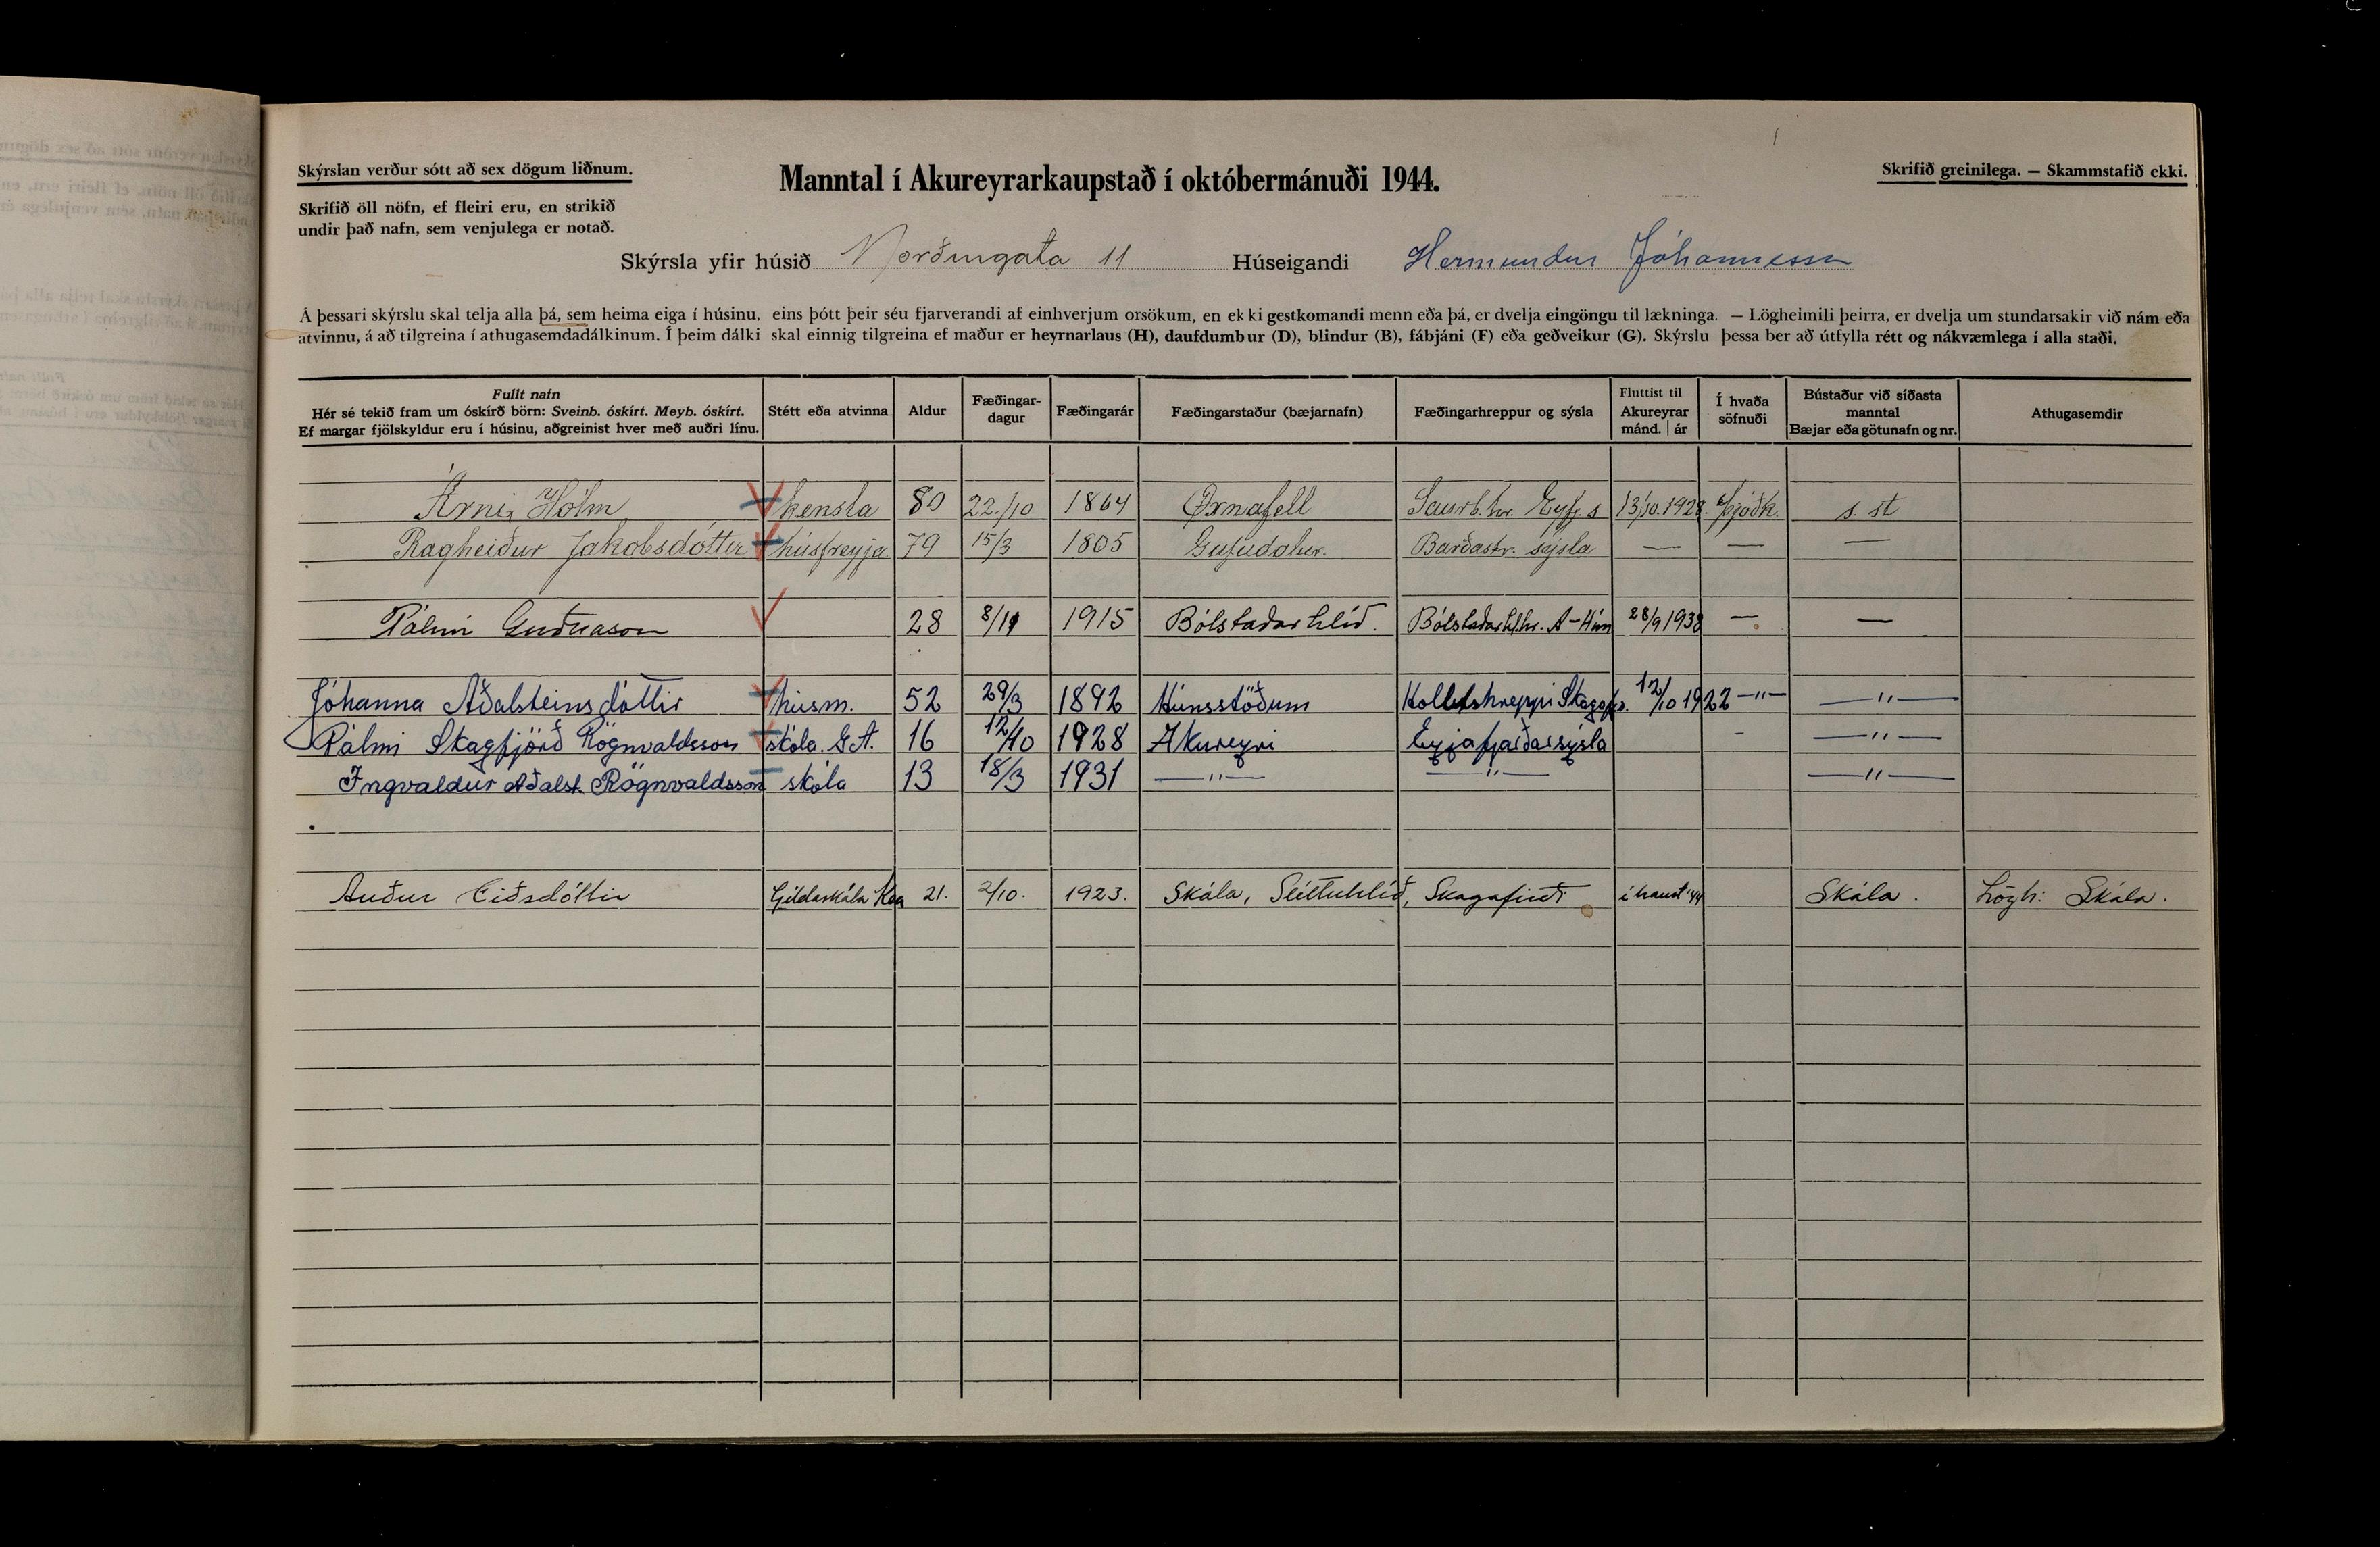 Skýrslan verður sótt að sex dögum liðnum.
Manntal í Akureyrarkaupstað í októbermánuði 1944.
Skrifið greinilega. — Skammstafið ekki.
Skrifið öll nöfn, ef fleiri eru, en strikið
undir það nafn, sem venjulega er notað.
Skýrsla yfir húsið Norðurgata 11 Húseigandi Hermundur Jóhannesson
Á þessari skýrslu skal telja alla þá, sem heima eiga í húsinu, eins þótt þeir séu fjarverandi af einhverjum orsökum, en ekki gestkomandi menn eða þá, er dvelja eingöngu til lækninga. — Lögheimili þeirra, er dvelja um stundarsakir við nám eða
atvinnu, á að tilgreina í athugasemdadálkinum. Í þeim dálki skal einnig tilgreina ef maður er heyrnarlaus (H), daufdumbur (D), blindur (B), fábjáni (F) eða geðveikur (G). Skýrslu þessa ber að útfylla rétt og nákvæmlega í alla staði.
Fullt nafn
Hér sé tekið fram um óskírð börn: Sveinb. óskírt. Meyb. óskírt.
Ef margar fjölskyldur eru í húsinu, aðgreinist hver með auðri línu.
Stétt eða atvinna
Aldur
Fæðingar-
dagur
Fæðingarár
Fæðingarstaður (bæjarnafn)
Fæðingarhreppur og sýsla
Fluttist til
Akureyrar
mánd. | ár
Í hvaða
söfnuði
Bústaður við síðasta
manntal
Bæjar eða götunafn og nr.
Athugasemdir
Árni Hólm kensla 80 22./10 1864 Ørnafell Saurb.hr. Eyf.s 13/10.1928 þjóðk. s. st
Ragheiður Jakobsdóttir húsfreyja 79 15/3 1865 Gufudalur. Barðastr. sýsla — — —
Pálmi Guðnason 28 8/11 1915 Bólstaðarhlíð. Bólstaðarhl.hr. A-Hún 28/9 1938 — —
Jóhanna Aðalsteinsdóttir húsm. 52 29/3 1892 Húnsstöðum Holtshreppi Skagafj. 12/10 1922 —"— —"—
Pálmi Skagfjörð Rögnvaldsson skóla. G.A. 16 12/10 1928 Akureyri Eyjafjarðarsýsla - —"—
Ingvaldur Aðalst. Rögnvaldsson skóla 13 18/3 1931 —"— —"— —"—
Auður Eiðsdóttir Gildaskála Kea 21. 2/10. 1923. Skála, Sléttuhlíð, Skagafirði í haust '44 Skála. Lögh: Skála.